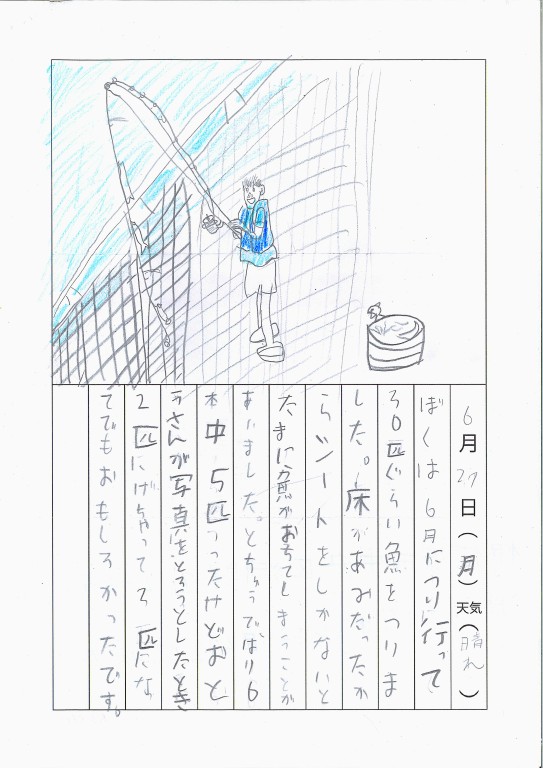 6月27日(月)天気(晴れ)
ぼくは6月につり行って
30匹ぐらい魚をつりま
した。床があみだったか
らシートをしかないと
たまに魚がおちてしまうことが
ありました。とちゅうでばり6
本中5匹つったけどおと
うさんが写真をとろうとしたとき
2匹にげちゃって3匹にな
ってでもおもしろかったです。